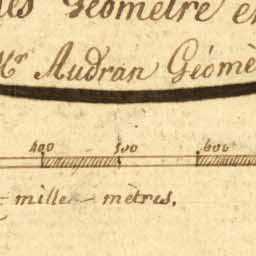 Géomètre e
Mr Audran Géomè
400 500 600
mille mètres.